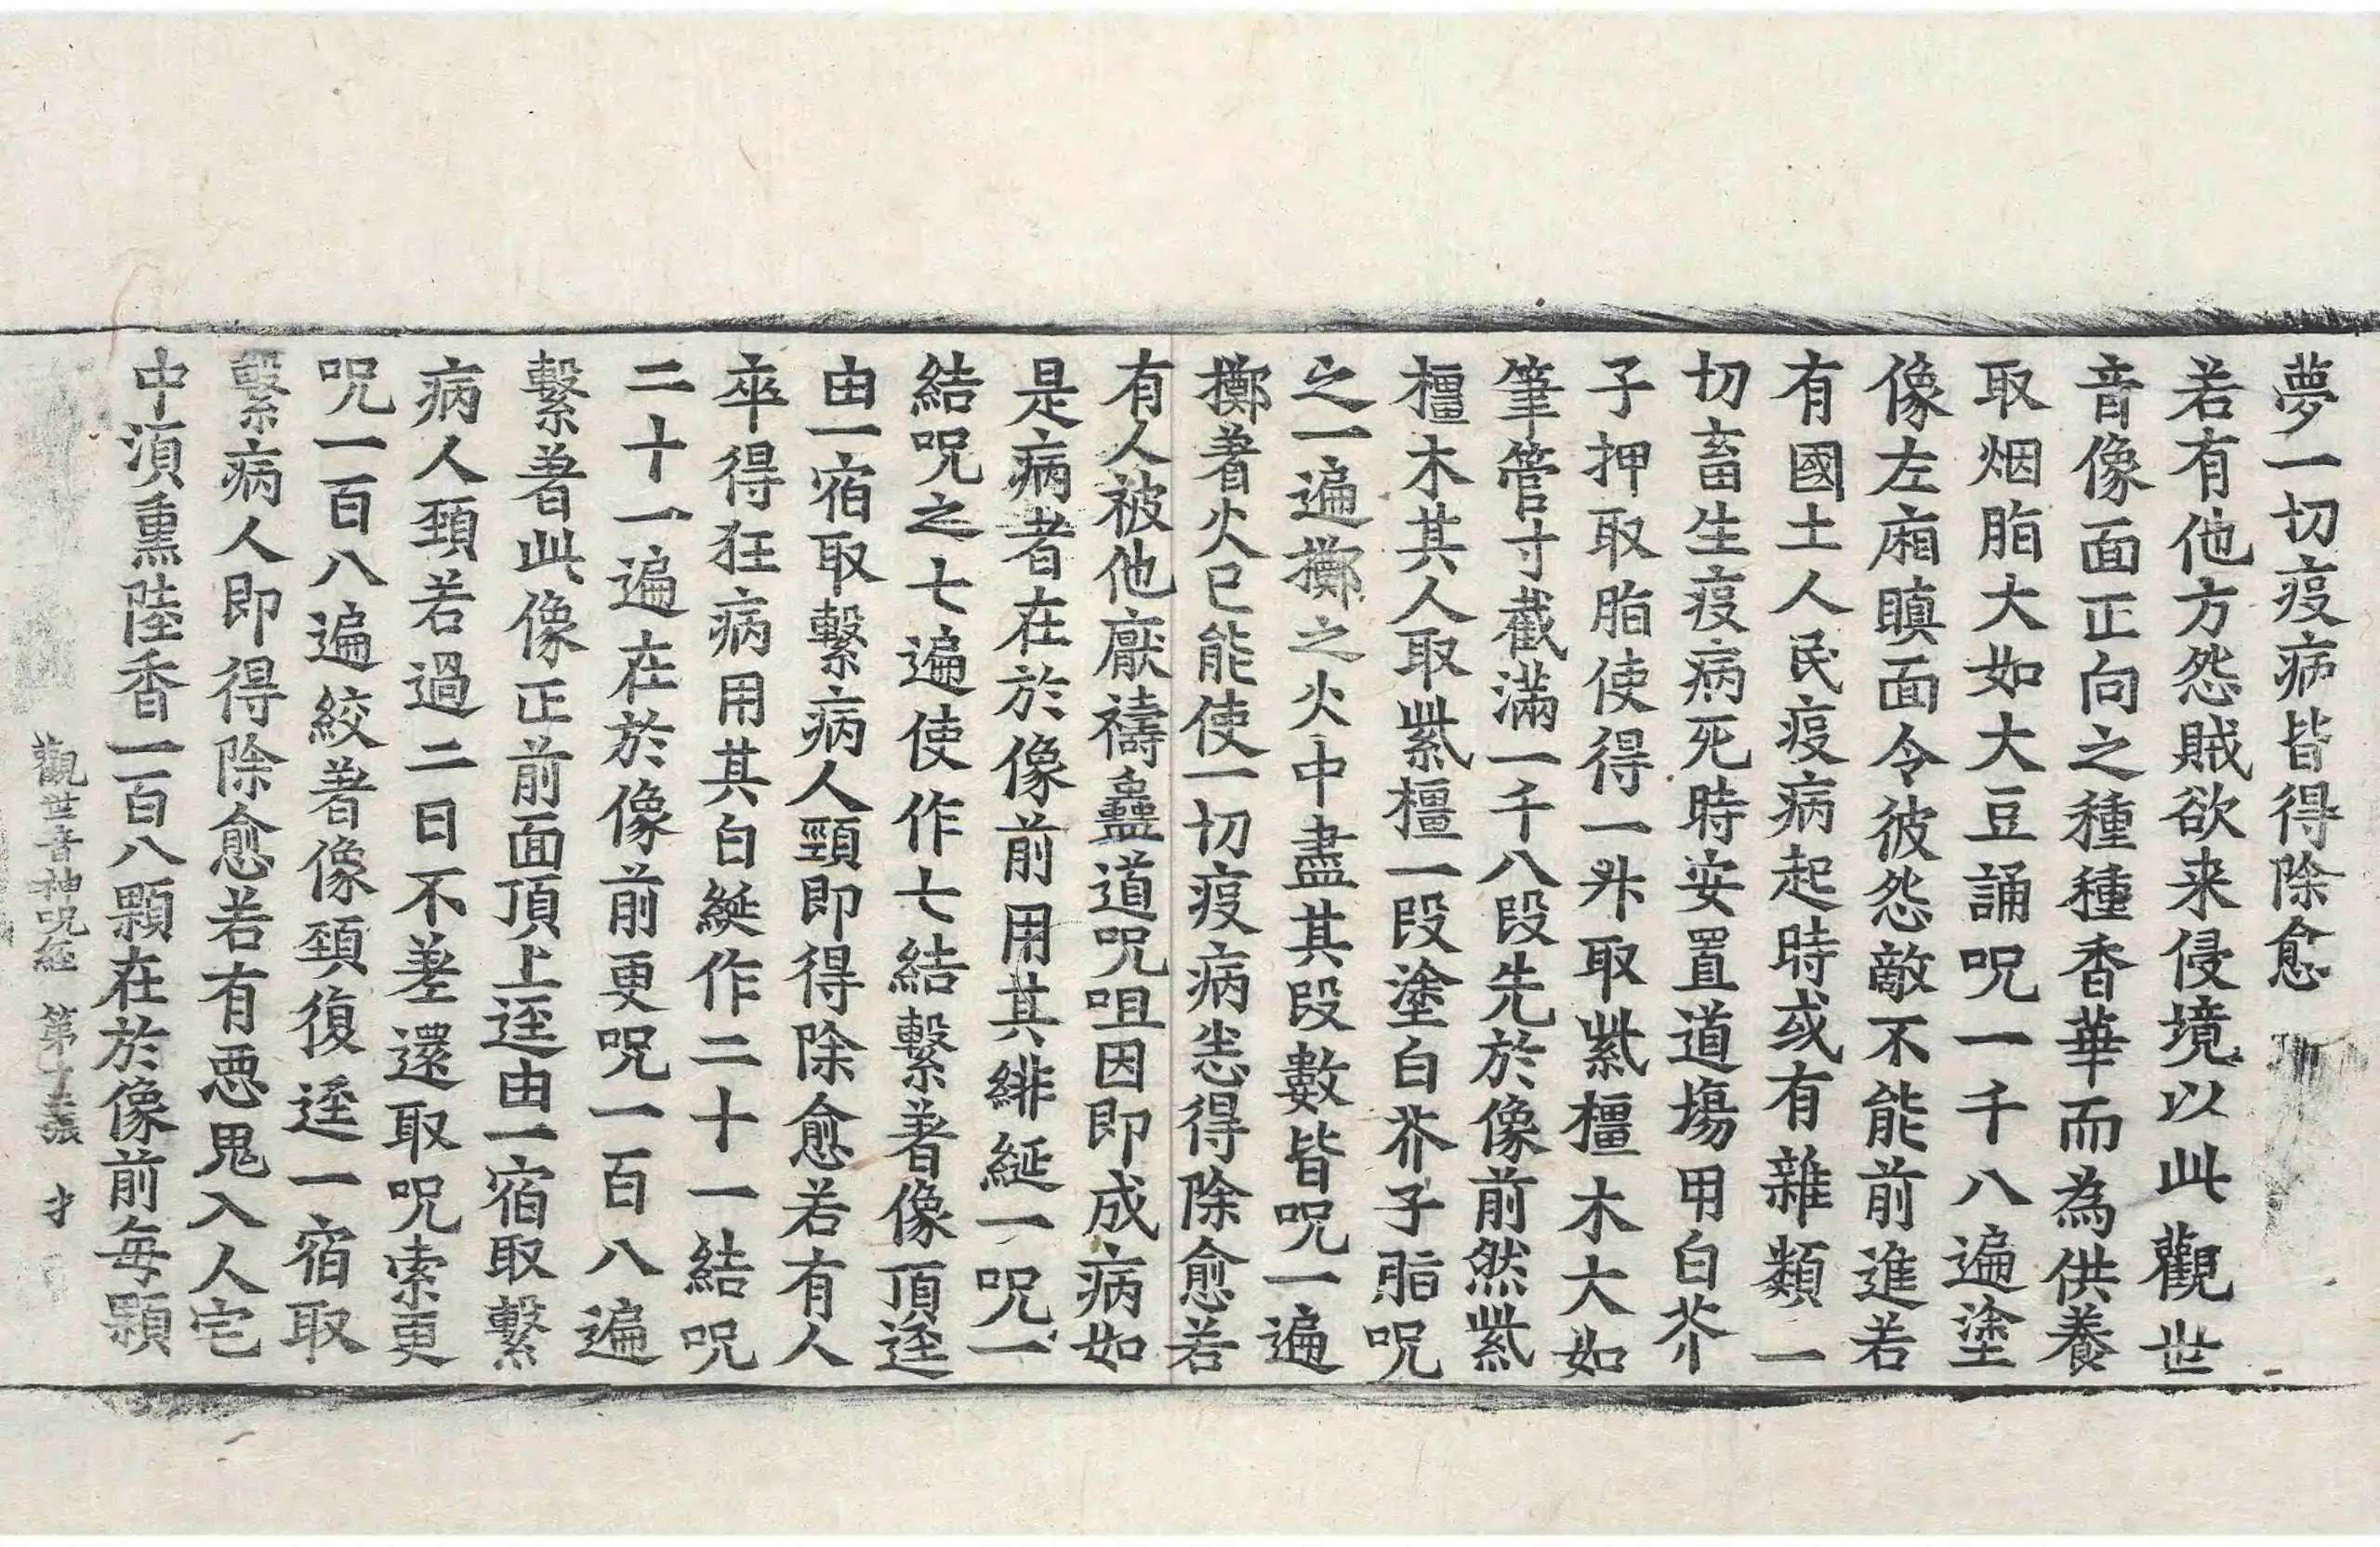 夢一切疫病皆得除愈
若有他方怨賊欲来侵境以此觀世
音像面正向之種種香華而為供養
取烟脂大如大豆誦呪一千八遍塗
像左廂瞋面令彼怨敵不能前進若
有國土人民疫病起時或有雜類一
切畜生疫病死時安置道場用白芥
子押取脂使得一升取紫橿木大如
筆管寸截滿一千八段先於像前然紫
橿木其人取紫橿一段塗白芥子脂呪
之一遍擲之火中盡其段數皆呪一遍
擲著火已能使一切疫病悉得除愈若
有人被他厭禱蠱道呪咀因即成病如
是病者在於像前用其緋綖一呪一
結呪之七遍使作七結繫著像頂逕
由一宿取繫病人頸即得除愈若有人
卒得狂病用其白綖作二十一結呪
二十一遍在於像前更呪一百八遍
繫著此像正前面頂上逕由一宿取繫
病人頸若過二日不差還取呪索更
呪一百八遍絞著像頸復逕一宿取
繫病人即得除愈若有悪鬼入人宅
中湏熏陸香一百八顆在於像前每顆
觀世音神呪經 第 張 才